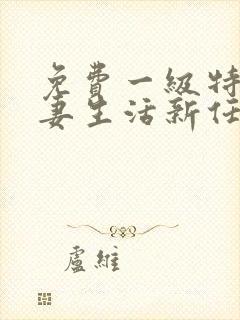 免費一級特
妻生活新任
盧維